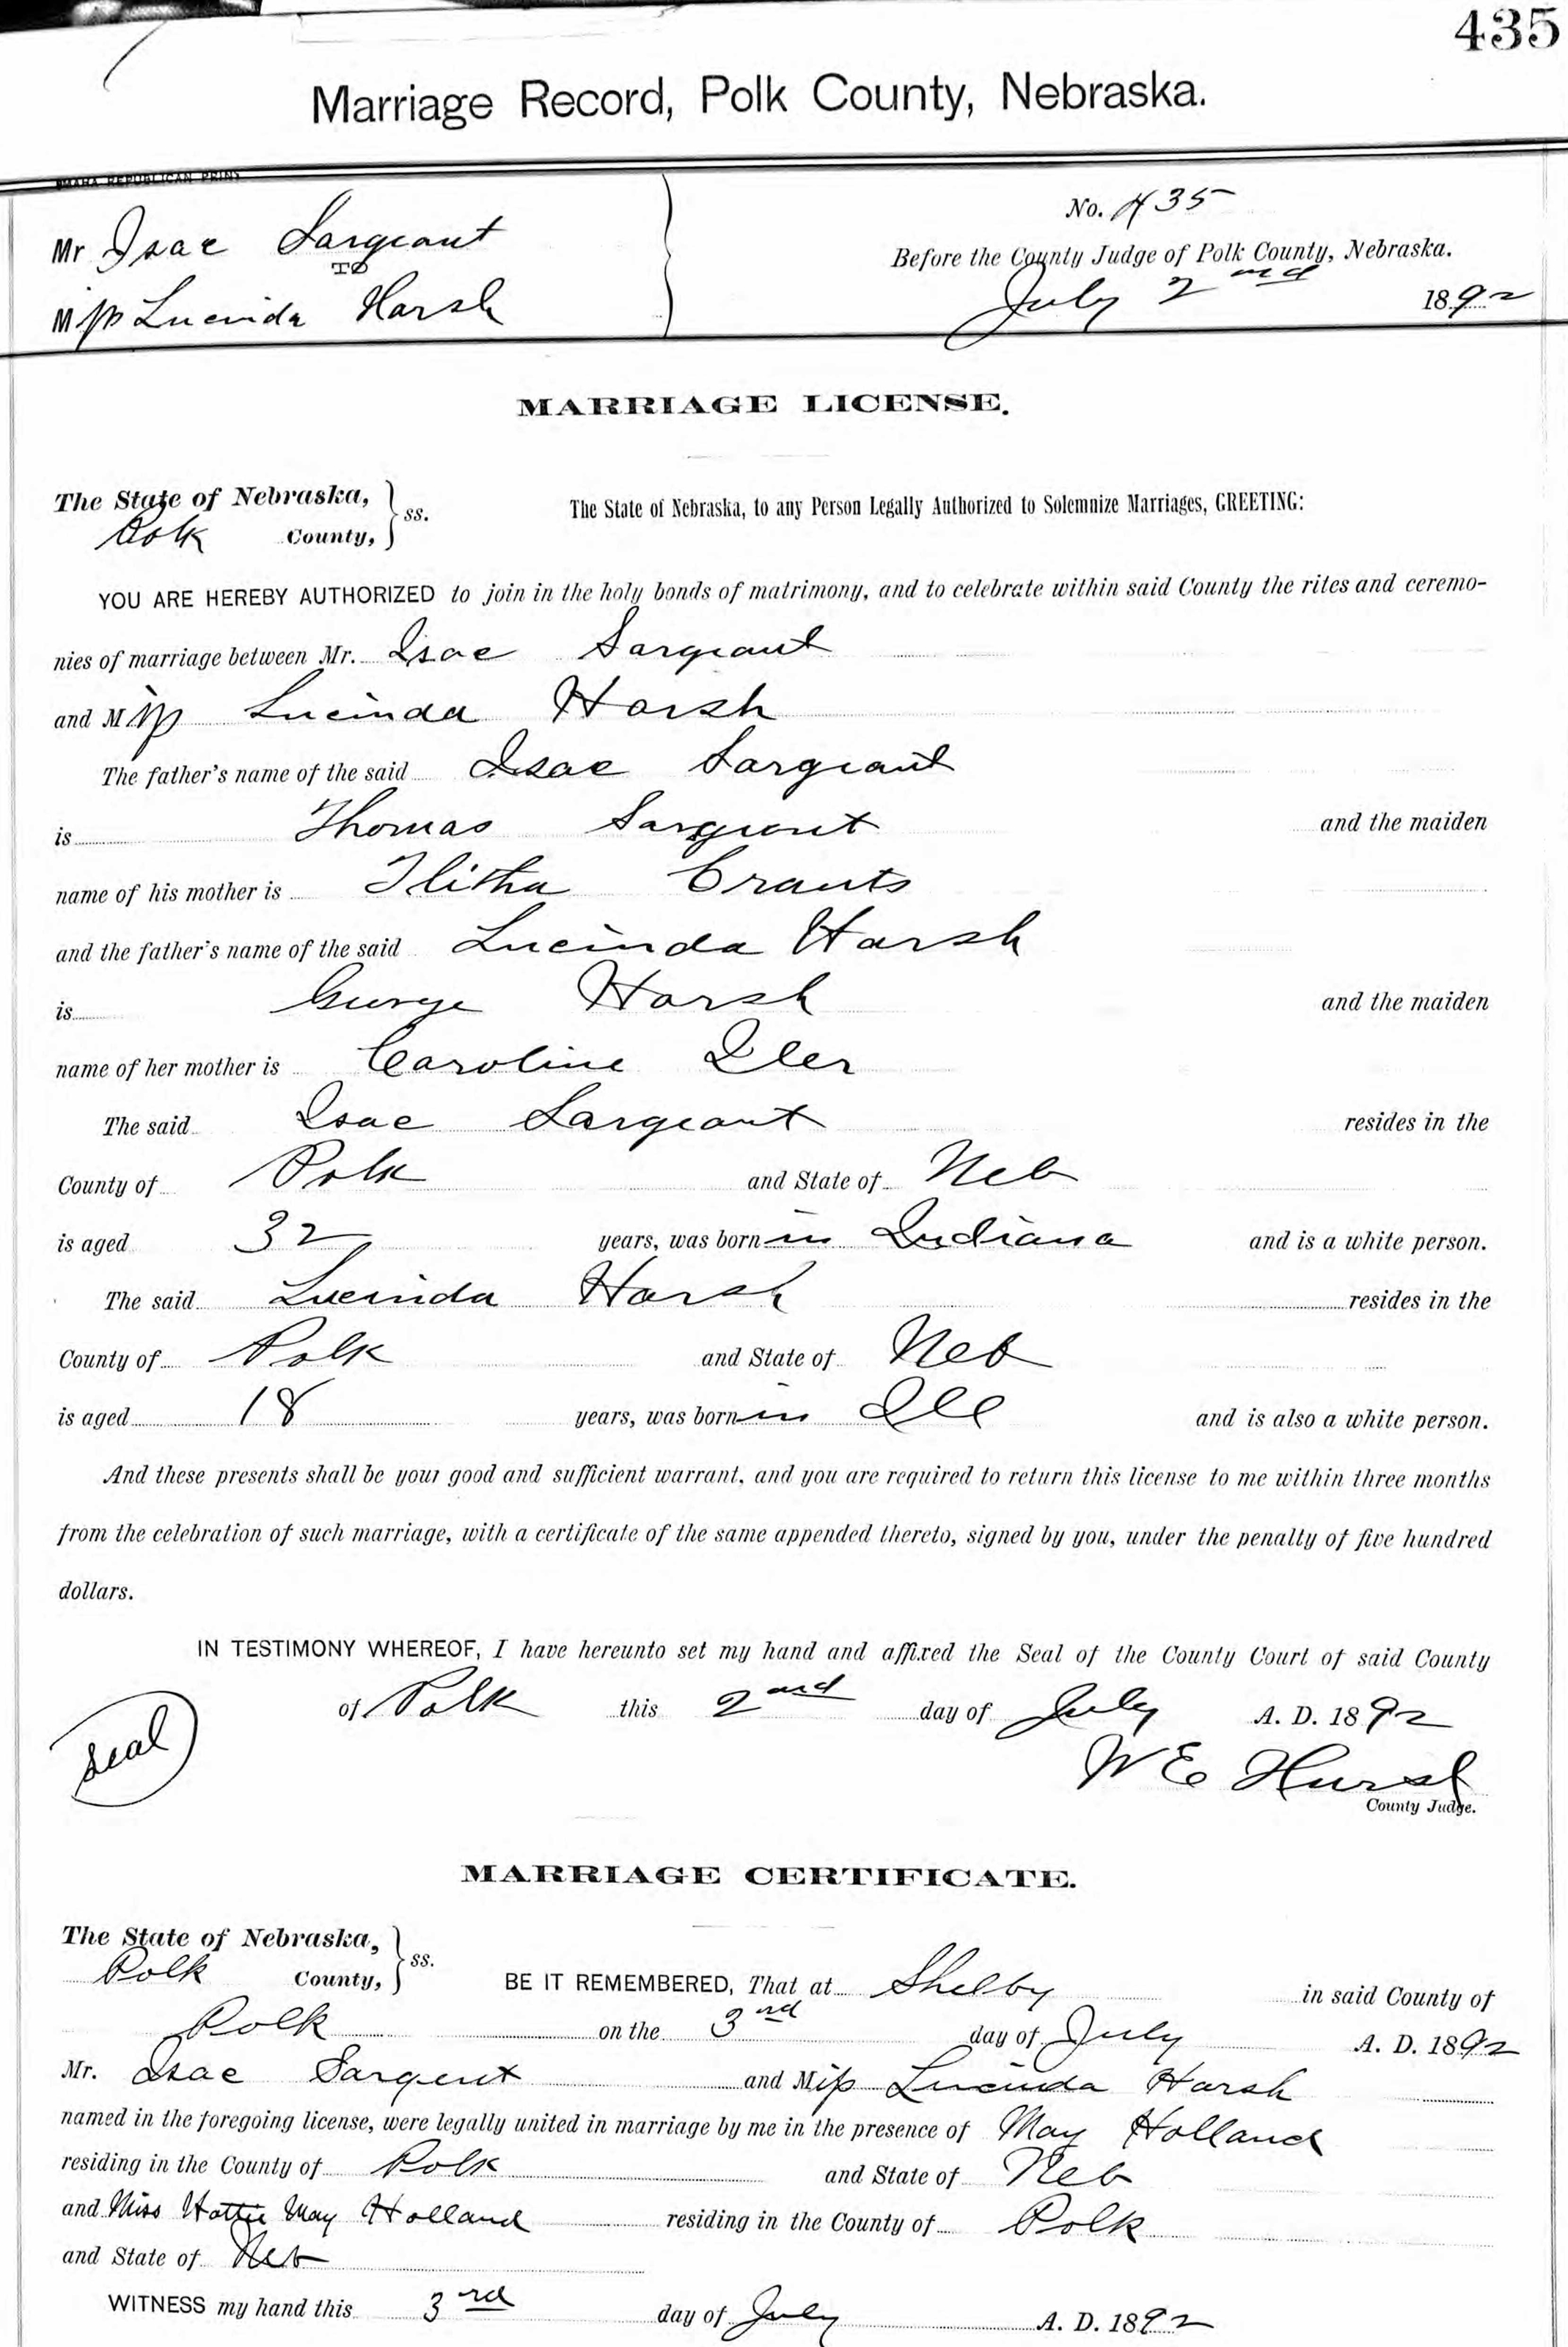 435
Marriage Record, Polk County, Nebraska.
OMAHA REPUBLICAN PRINT
Mr Isac Sargeant
TO
Miss Lucinda Harsh
No. 435
Before the County Judge of Polk County, Nebraska.
July 2nd 1892
MARRIAGE LICENSE.
The State of Nebraska,
Polk County, } ss.
The State of Nebraska, to any Person Legally Authorized to Solemnize Marriages, GREETING:
YOU ARE HEREBY AUTHORIZED to join in the holy bonds of matrimony, and to celebrate within said County the rites and ceremo-
nies of marriage between Mr. Isac Sargeant
and Miss Lucinda Harsh
The father's name of the said Isac Sargeant
is Thomas Sargeant and the maiden
name of his mother is Tlitha Crauts
and the father's name of the said Lucinda Harsh
is George Harsh and the maiden
name of her mother is Caroline Iler
The said Isac Sargeant resides in the
County of Polk and State of Neb
is aged 32 years, was born in Indiana and is a white person.
The said Lucinda Harsh resides in the
County of Polk and State of Neb
is aged 18 years, was born in Ill and is also a white person.
And these presents shall be your good and sufficient warrant, and you are required to return this license to me within three months
from the celebration of such marriage, with a certificate of the same appended thereto, signed by you, under the penalty of five hundred
dollars.
IN TESTIMONY WHEREOF, I have hereunto set my hand and affixed the Seal of the County Court of said County
of Polk this 2nd day of July A. D. 1892
Seal
W E Hurst
County Judge.
MARRIAGE CERTIFICATE.
The State of Nebraska,
Polk County, } ss.
BE IT REMEMBERED, That at Shelby in said County of
Polk on the 3rd day of July A. D. 1892
Mr. Isac Sargent and Miss Lucinda Harsh
named in the foregoing license, were legally united in marriage by me in the presence of May Holland
residing in the County of Polk and State of Neb
and Miss Hattie May Holland residing in the County of Polk
and State of Neb
WITNESS my hand this 3rd day of July A. D. 1892